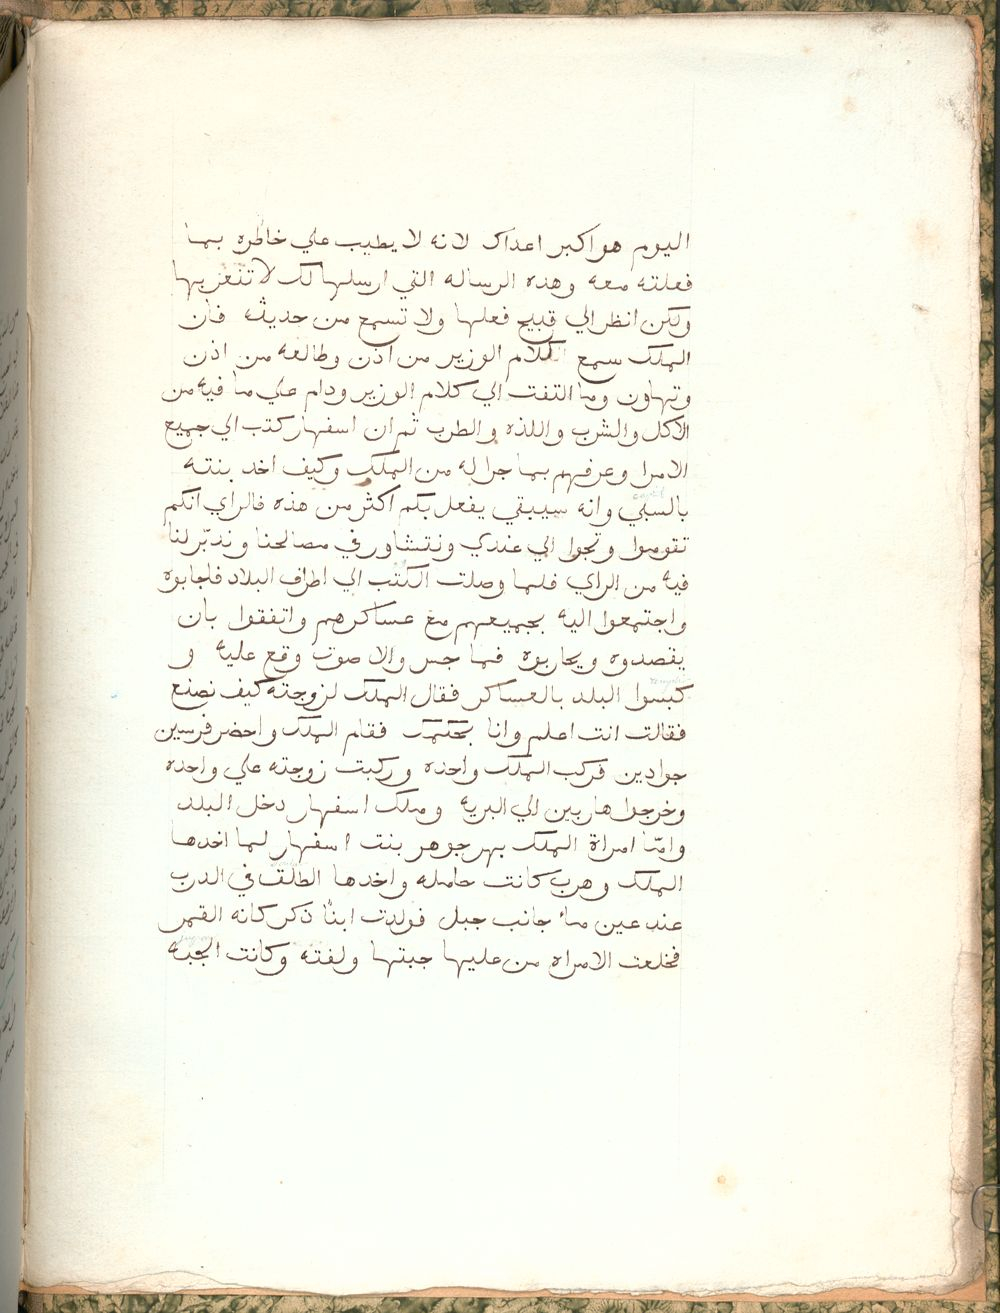 اليوم هو اكبر اعداك لانه لا يطيب علي خاطره بما
فعلته معه وهده الرساله التي ارسلها لك لا تنغر بها
ولكن انظر الي قبيح فعلها ولا تسمع من حديثه فان
الملك سمع الكلام الوزير من ادن وطالعه من ادن
وتهاون وما التفت الي كلام الوزير ودام علي ما فيه من
الاكل والشرب واللذه والطرب ثم ان اسفهار كتب الي جميع
الامرا وعرفهم بما جرا له من الملك وكيف اخد بنته
بالسبي وانه سيبقي يفعل بكم اكثر من هذه فالراي انكم
تقوموا وتجوا الي عندي ونتشاور في مصالحنا وندبّر لنا
فيه من الراي فلما وصلت الكتب الي اطراف البلاد فاجابوه
واجتمعوا اليه بجميعهم مع عساكرهم واتفقوا بان
يقصدوه ويحاربوه فما حس والا صوت وقع عليه و
كبسوا البلد بالعساكر فقال الملك لزوجته كيف نصنع
فقالت انت اعلم وانا بحكمك فقام الملك واحضر فرسين
جوادين فركب الملك واحده وركبت زوجته علي واحده
وخرجوا هاربين الي البريه وملك اسفهار دخل البلد
وامّا امراة الملك بهرجوهر بنت اسفهار لما اخدها
الملك وهرب كانت حامله واخدها الطلق في الدرب
عند عين ماء جانب جبل فولدت ابناً ذكر كانه القمر
فخلعت الامراه من عليها جبتها ولفته وكانت الجبه